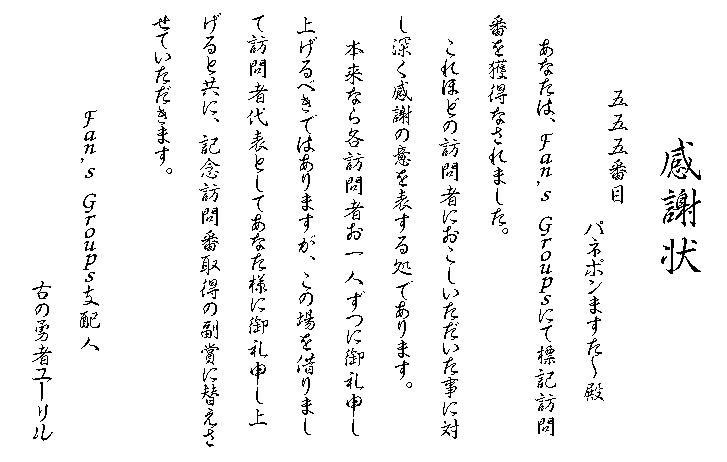 感謝状
五五五番目
パネポンますたぁ殿
あなたは、Fan's Groupsにて標記訪問
番を獲得なされました。
これほどの訪問者におこしいただいた事に対
し深く感謝の意を表する処であります。
本来なら各訪問者お一人ずつに御礼申し
上げるべきではありますが、この場を借りまし
て訪問者代表としてあなた様に御礼申し上
げると共に、記念訪問番取得の副賞に替えさ
せていただきます。
Fan's Groups支配人
古の勇者ユーリル